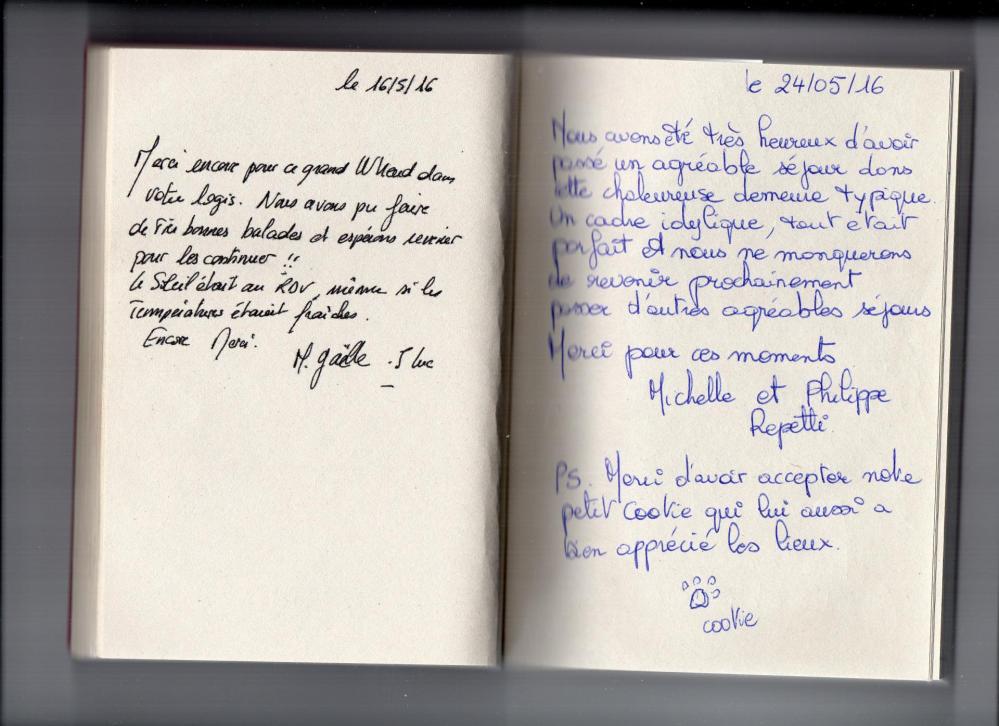 le 16/5/16
Merci encore pour ce grand WKend dans
votre logis. Nous avons pu faire
de très bonnes balades et espérons revenir
pour les continuer !!
le Soleil était au RDV, même si les
Températures étaient fraîches.
Encore Merci.
M. Gaëlle - J Luc
le 24/05/16
Nous avons été très heureux d'avoir
passé un agréable séjour dans
cette chaleureuse demeure typique.
Un cadre idylique, tout était
parfait et nous ne manquerons
de revenir prochainement
passer d'autres agréables séjours
Merci pour ces moments
Michelle et Philippe
Repetti.
PS. Merci d'avoir accepter notre
petit Cookie qui lui aussi a
bien apprécié les lieux.
cookie